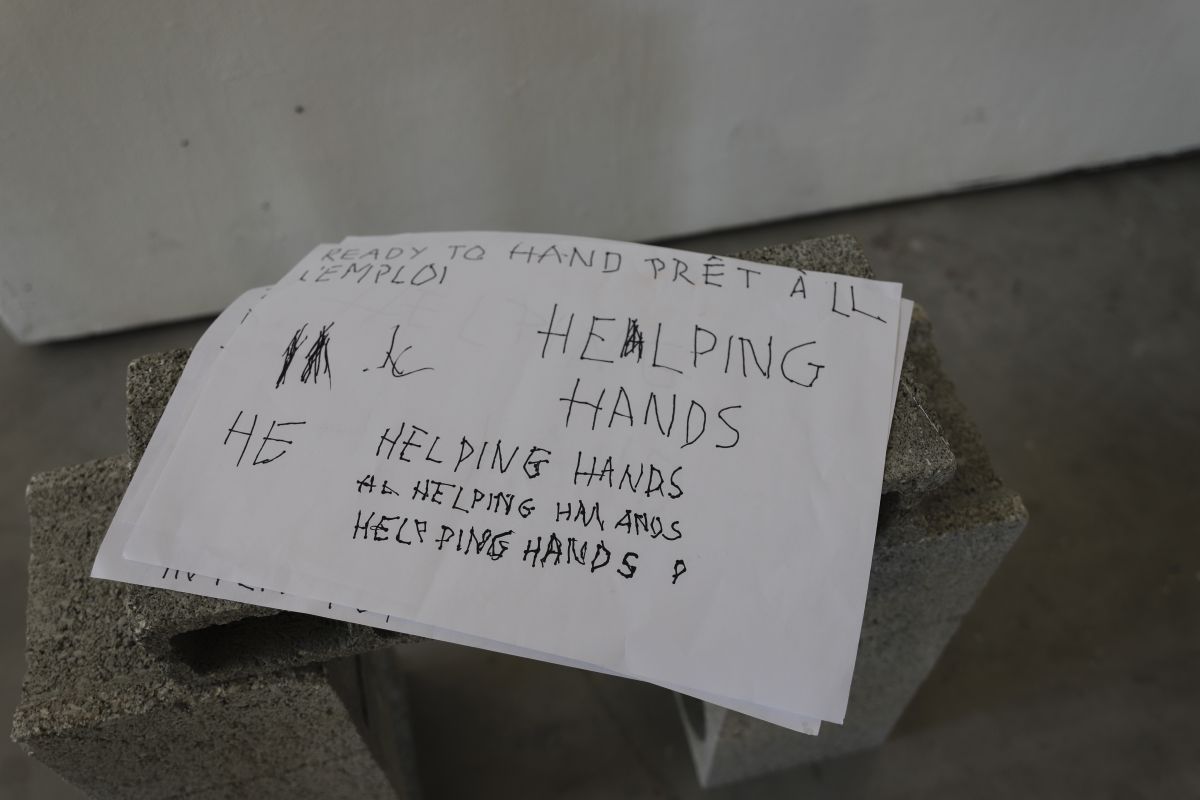 READY TO HAND PRÊT À LL
L'EMPLOI
HELPING
HANDS
HE
HELPING HANDS
HELPING HANDS
HELPING HANDS